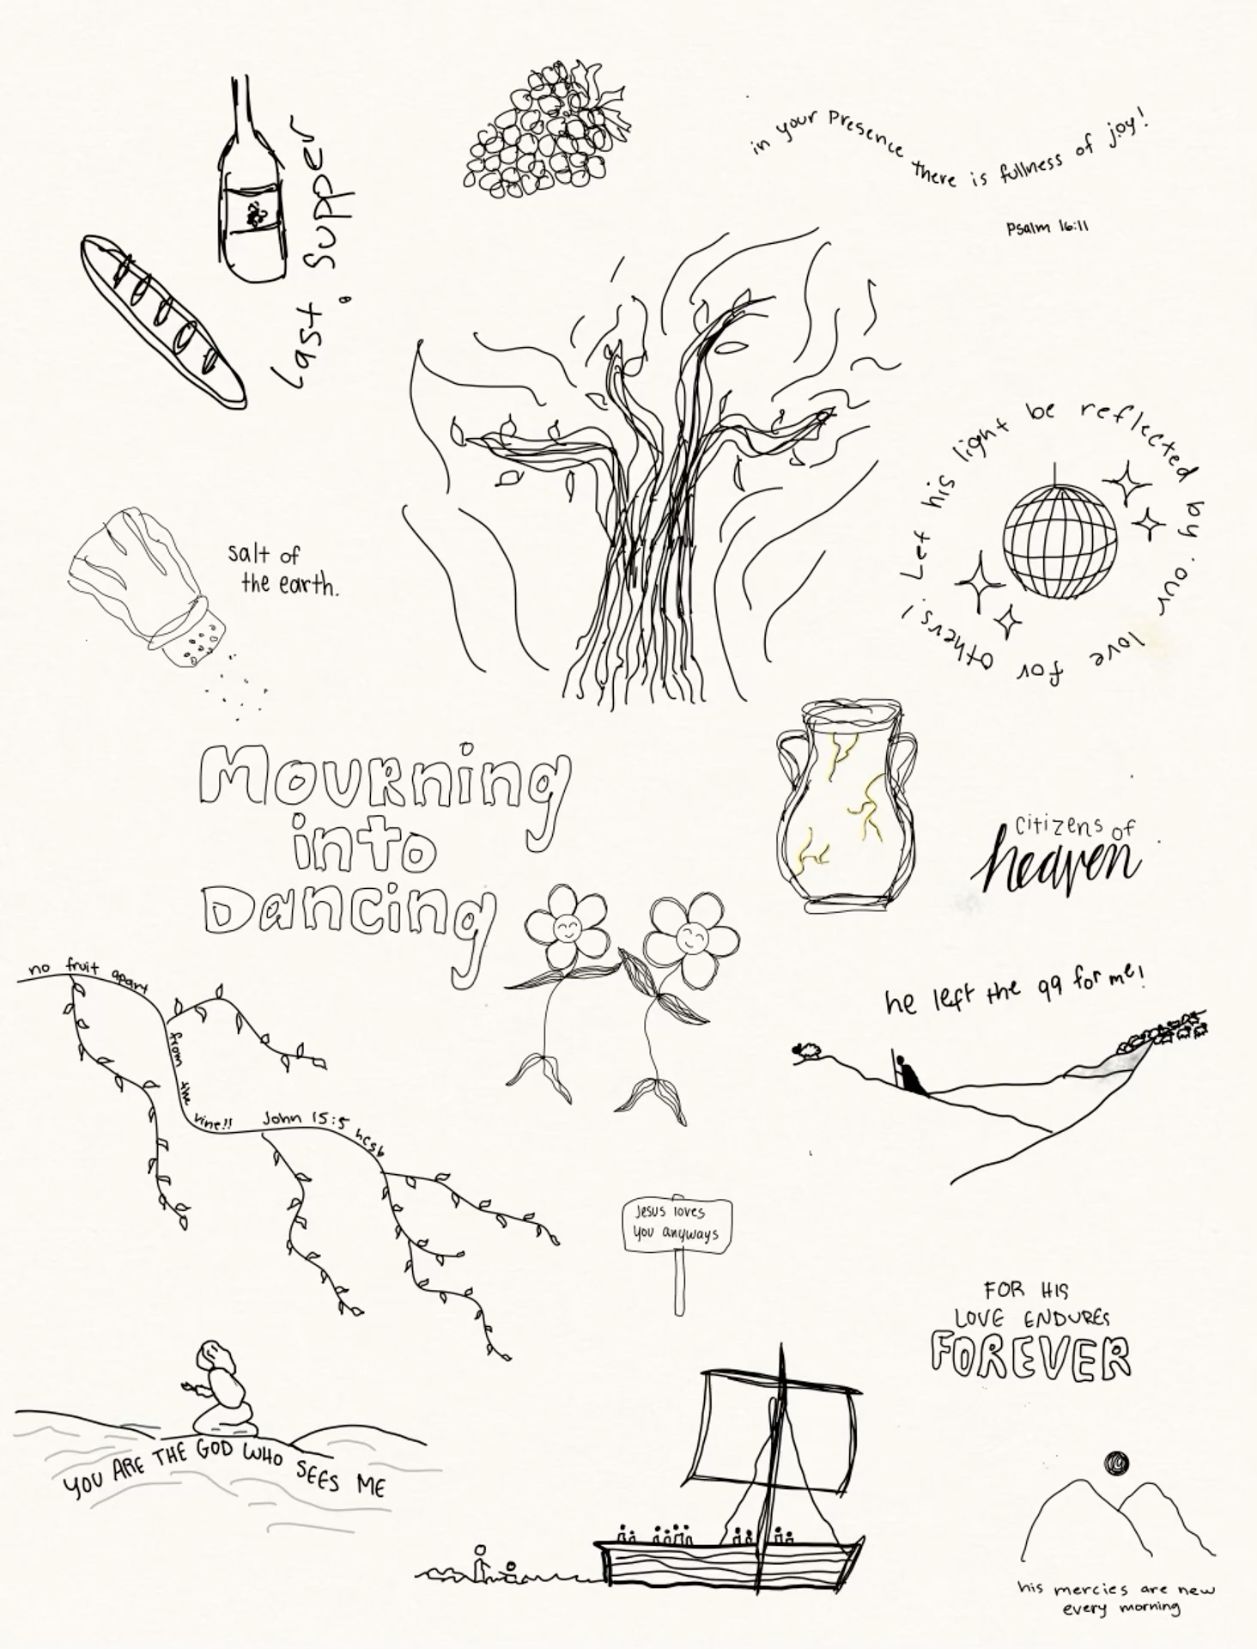 Last Supper
in your presence there is fullness of joy!
Psalm 16:11
Let his light be reflected by our love for others!
salt of
the earth.
Mourning
into
Dancing
citizens of
heaven
no fruit apart from the vine!! John 15:5
he left the 99 for me!
Jesus loves
you anyways
FOR HIS
LOVE ENDURES
FOREVER
YOU ARE THE GOD WHO SEES ME
his mercies are new
every morning